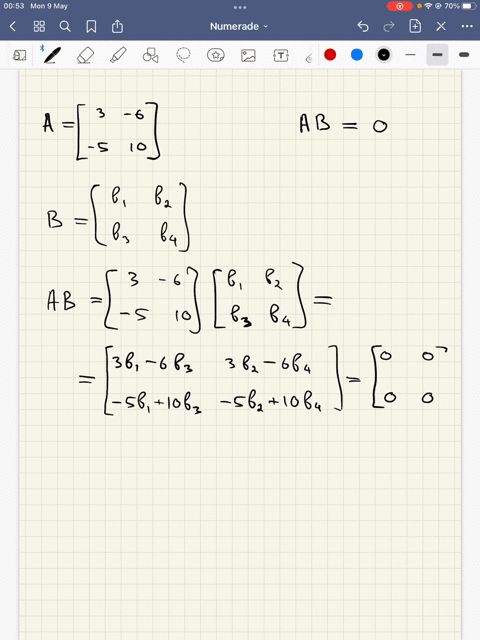 00:53 Mon 9 May 70%
Numerade
A = [ 3 -6 ; -5 10 ] AB = 0
B = [ b₁ b₂ ; b₃ b₄ ]
AB = [ 3 -6 ; -5 10 ] [ b₁ b₂ ; b₃ b₄ ] =
= [ 3b₁-6b₃ 3b₂-6b₄ ; -5b₁+10b₃ -5b₂+10b₄ ] = [ 0 0 ; 0 0 ]